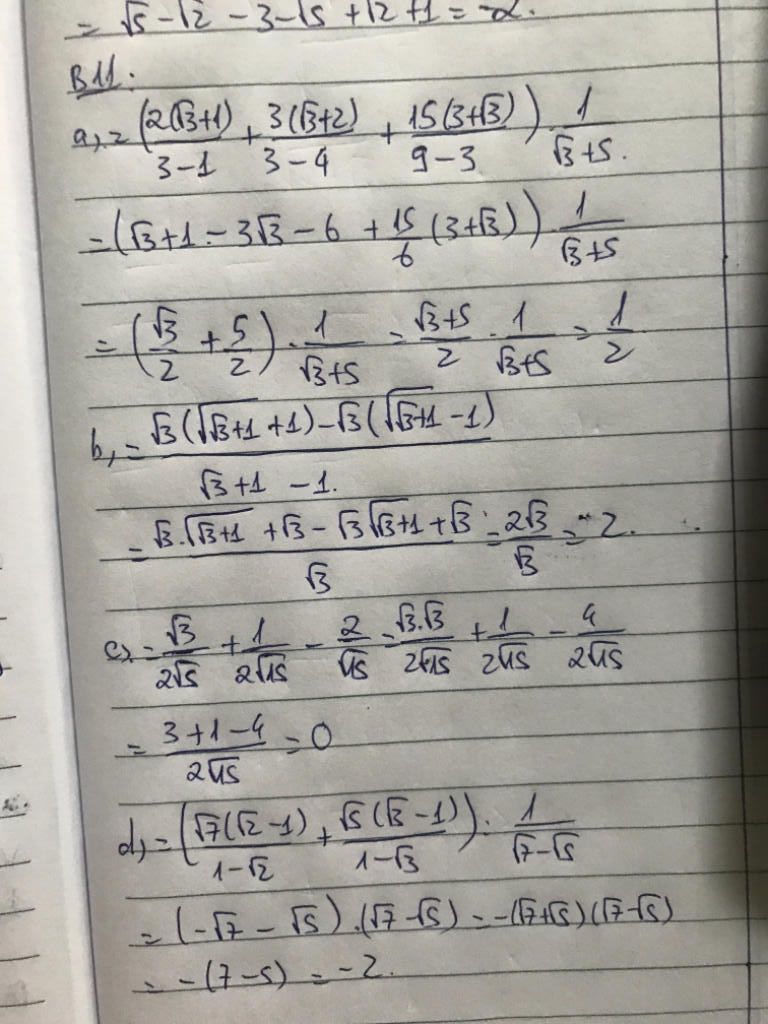 = √5 - √2 - 3 - √5 + √2 + 1 = -2.
B11:
a, = (2(√3+1)/(3-1) + 3(√3+2)/(3-4) + 15(3+√3)/(9-3)) · 1/(√3+5).
= (√3+1 - 3√3 - 6 + 15/6 (3+√3)) · 1/(√3+5)
= (√3/2 + 5/2) · 1/(√3+5) = (√3+5)/2 · 1/(√3+5) = 1/2
b, = (√3(√(√3+1) + 1) - √3(√(√3+1) - 1))/(√3+1 - 1.)
= (√3.√(√3+1) + √3 - √3√(√3+1) + √3)/√3 = 2√3/√3 = 2.
c, = √3/(2√5) + 1/(2√15) - 2/√15 = √3.√3/(2√15) + 1/(2√15) - 4/(2√15)
= (3+1-4)/(2√15) = 0
d, = (√7(√2-1)/(1-√2) + √5(√3-1)/(1-√3)) : 1/(√7-√5)
= (-√7 - √5).(√7-√5) = -(√7+√5)(√7-√5)
= -(7-5) = -2.